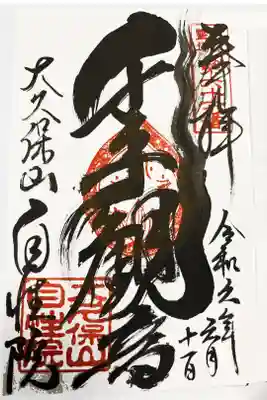 奉拝
令和元年
六月
十一日
千手觀音
大久保山
自性院
大久保山
自性院